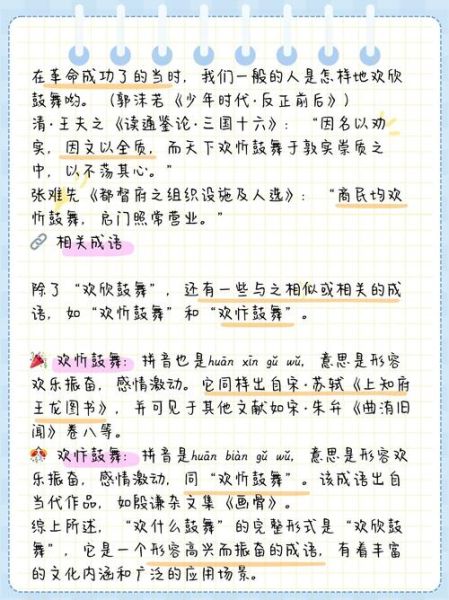 在革命成功了的当时，我们一般的人是怎样地欢欣
鼓舞哟。（郭沫若《少年时代·反正前后》）
清·王夫之《读通鉴论·三国十六》：“因名以劝
实，因文以全质，而天下欢忻鼓舞于敦实崇质之
中，以不荡其心。”
张难先《都督府之组织设施及人选》：“商民均欢
忻鼓舞，启门照常营业。”
相关成语
除了“欢欣鼓舞”，还有一些与之相似或相关的成
语，如“欢忻鼓舞”和“欢忭鼓舞”。
欢忻鼓舞：拼音也是huān xīn gǔ wǔ，意思是形容
欢乐振奋，感情激动。它同样出自宋·苏轼《上知府
王龙图书》，并可见于其他文献如宋·朱弁《曲洧旧
闻》卷八等。
欢忭鼓舞：拼音是huān biàn gǔ wǔ，意思是形容欢
乐振奋，感情激动，同“欢忻鼓舞”。该成语出自
当代作品，如殷谦杂文集《画骨》。
综上所述，“欢什么鼓舞”的完整形式是“欢欣鼓
舞”，它是一个形容高兴而振奋的成语，有着丰富
的文化内涵和广泛的应用场景。